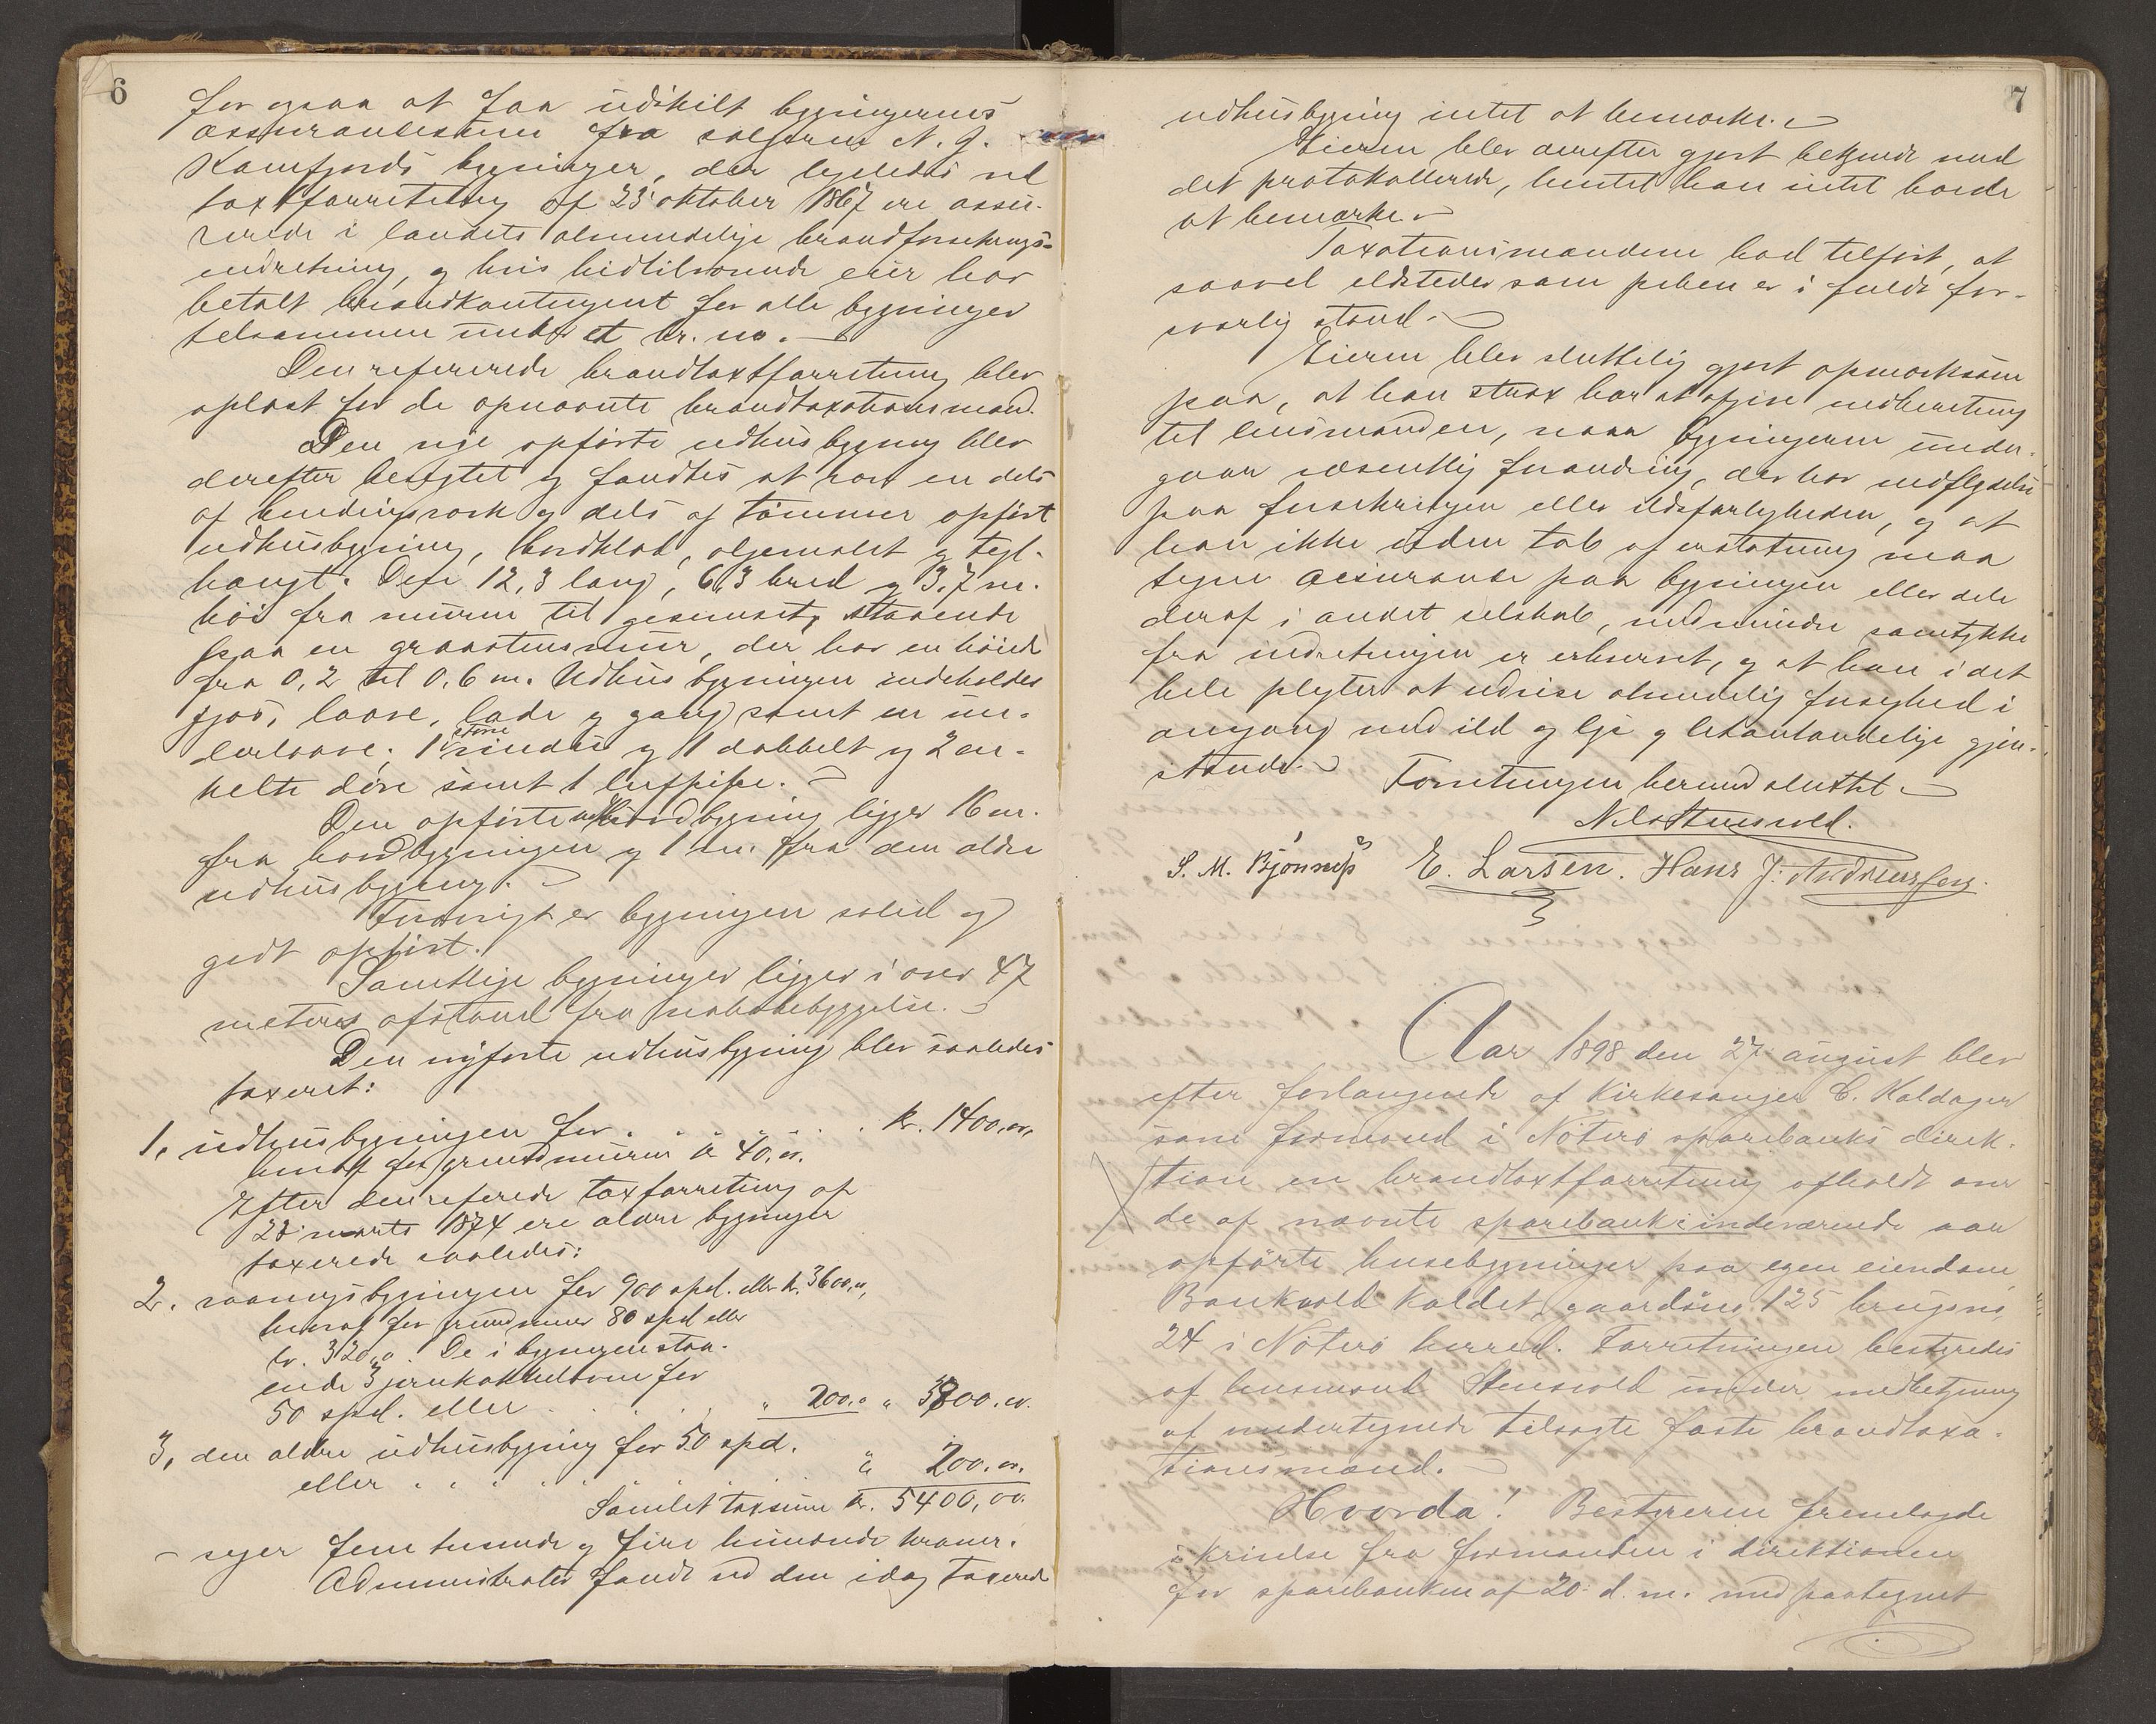 6
for ogsaa at faa udskilt bygningernes
assurancesum fra sælgeren N. J.
Kamfjords bygninger, der ligeledes ved
taxtforretning af 23' oktober 1867 ere assu-
rerede i landets almindelige brandforsikrings-
indretning, og hvis hidtilværende eier har
betalt brandkontingent for alle bygninger
tilsammen under et br. no. —
Den refererede brandtaxtforretning blev
oplæst for de opnævnte brandtaxationsmænd.
Den nye opførte udhusbygning blev
derefter besigtet og fandtes at være en dels
af bindingsværk og dels af tømmer opført
udhusbygning, bordklædt, oljemalet og tegl-
hængt. Den 12,3 lang, 6,3 bred og 3,7 m.
høi fra muren til gesimset, staaende
paa en graastensmur, der har en høide
fra 0,2 til 0,6 m. Udhusbygningen indeholder
fjøs, laave, lade og gang samt en un-
derlaave; 1 større vindu og 1 dobbelt og 2 en-
kelte døre samt 1 luftpipe. —
Den opførte udhusbygning ligger 16 m.
fra hovedbygningen og 1 m. fra den ældre
udhusbygning. —
Forøvrigt er bygningen solid og
godt opført.
Samtlige bygninger ligger i over 47
meters afstand fra nabobebyggelse. —
Den nyførte udhusbygning blev saaledes
taxeret:
1, udhusbygningen for . . . . . . kr. 1400,oo,
heraf for grundmuren kr 40,oo.
Efter den referede taxforretning af
28' marts 1874 ere ældre bygninger
taxerede saaledes:
2. vaaningsbygningen for 900 spd. eller kr. 3600,oo,
heraf for grundmur 80 spd eller
kr. 320,o. De i bygningen staa-
ende 3 jernkakkelovne for
50 spd. eller . . . . . . " 200.o " 3800.oo.
3, den ældre udhusbygning for 50 spd.
eller . . . . . . " 200.oo.
Samlet taxsum kr. 5400,oo.
— siger fem tusinde og fire hundrede kroner.
Administrator fandt ved den idag taxerede
7
udhusbygning intet at bemærke. —
Eieren blev derefter gjort bekjendt med
det protokollerede, hvortil han intet havde
at bemærke. —
Taxationsmændene bad tilført, at
saavel ildsteder som piben er i fuldt for-
svarlig stand. —
Eieren blev sluttelig gjort opmærksom
paa, at han strax har at afgive indberetning
til lensmanden, naar bygningerne under-
gaar væsentlig forandring, der har indflydelse
paa forsikringen eller ildsfarligheden, og at
han ikke uden tab af erstatning maa
tegne assurance paa bygningen eller dele
deraf i andet selskab, medmindre samtykke
fra indretningen er erhvervet, og at han i det
hele pligter at udvise almindelig forsighed i
omgang med ild og lys og letantændelige gjen-
stande. — Forretningen hermed sluttet —
Nils Stensvold.
S. M. Bjønnes E. Larsen. Hans J. Andreassen.
Aar 1898 den 27' august blev
efter forlangende af Kirkesanger C. Kaldager
som formand i Nøterø sparebanks direk-
tion en brandtaxtforretning afholdt over
de af nævnte sparebank i indeværende aar
opførte husebygninger paa egen eiendom
Bankvold kaldet, gaardsno. 125 brugsno.
24 i Nøterø herred. Forretningen bestyredes
af lensmand Stensvold under medbetjening
af undertegnede tilsagte faste brandtaxa-
tionsmænd. —
Hvorda! Bestyreren fremlagde
skrivelse fra formanden i direktionen
for sparebanken af 20' d. m. med paategnet